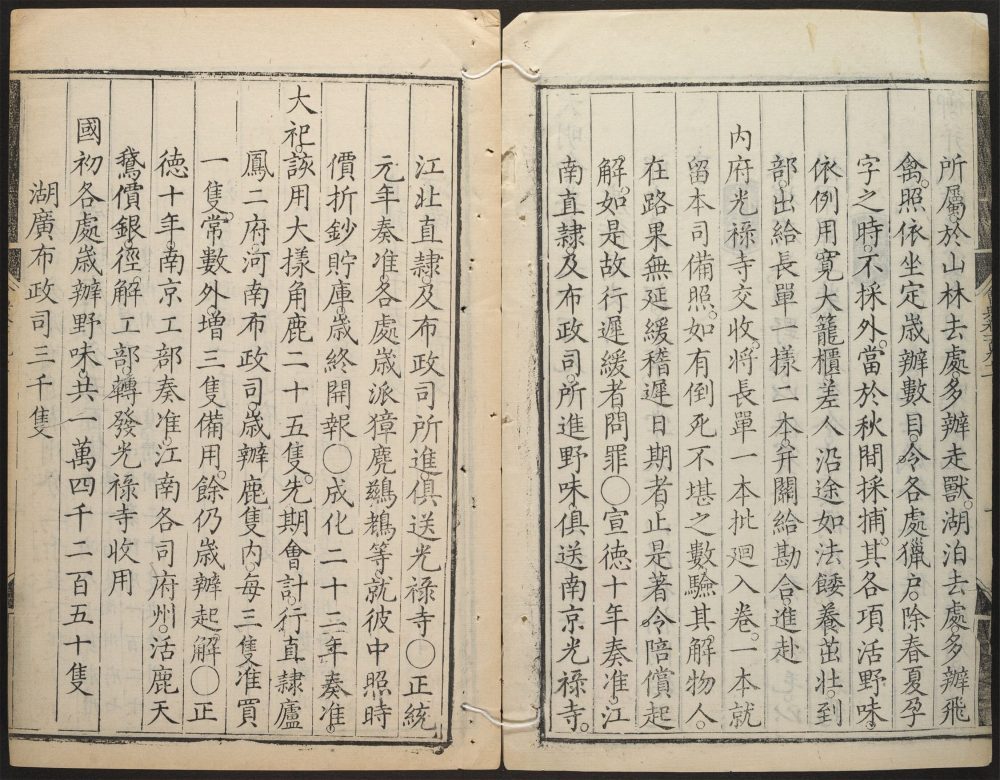 所屬。於山林去處多辦走獸。湖泊去處多辦飛
禽。照依坐定歲辦數目。令各處獵户。除春夏孕
字之時。不採外。當於秋間採捕。其各項活野味。
依例用寬大籠櫃差人沿途如法餧養茁壯。到
部。出給長單一樣二本。并關給勘合。進赴
内府光禄寺交收。將長單一本批廻入卷。一本就
留本司備照。如有倒死不堪之數驗其解物人。
在路果無延緩稽遲日期者。止是著令陪償起
解。如是故行遲緩者問罪〇宣德十年奏准。江
南直隷及布政司。所進野味。俱送南京光禄寺。
江北直隷。及布政司所進俱送光禄寺〇正統
元年奏准。各處歲派獐麂鷀鵝等就彼中照時
價折鈔貯庫。歲終開報〇成化二十二年奏准
大祀。該用大樣角鹿二十五隻。先期會計。行直隷廬
鳳二府。河南布政司。歲辦鹿隻内。每三隻准買
一隻。常數外。增三隻備用。餘仍歲辦起解〇正
德十年。南京工部奏准。江南各司府州。活鹿天
鵞價銀。徑解工部。轉發光禄寺收用
國初各處歲辦野味。共一萬四千二百五十隻
湖廣布政司三千隻